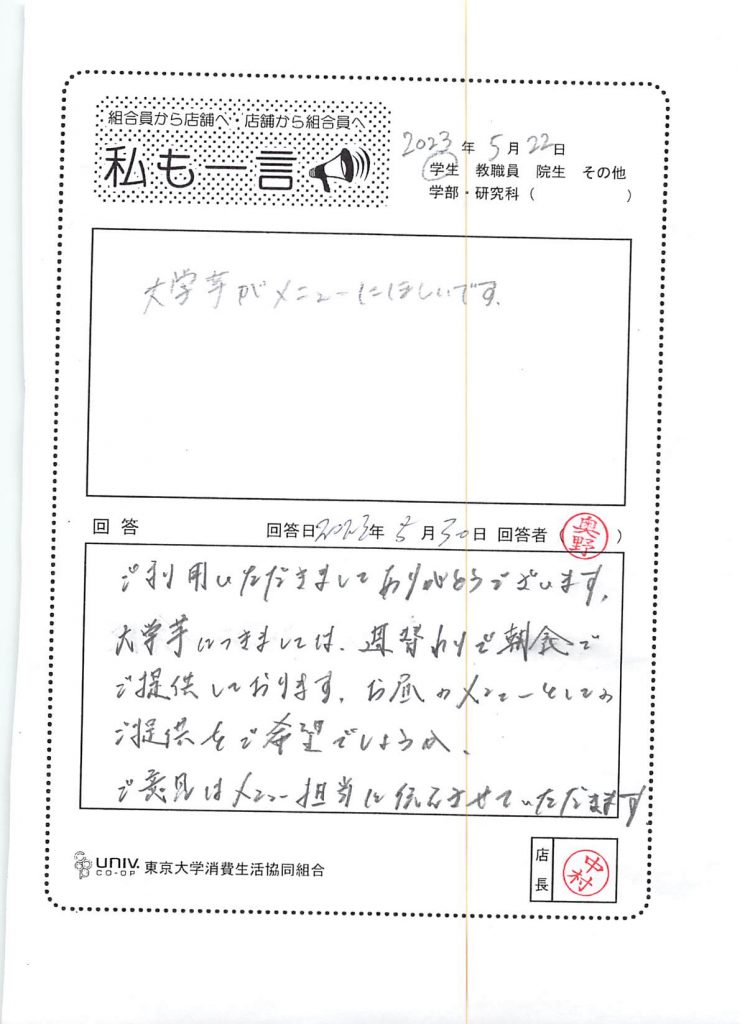 組合員から店舗へ・店舗から組合員へ
私も一言
2023年 5月22日
学生 教職員 院生 その他
学部・研究科( )
大学芋がメニューにほしいです。
回答 回答日2023年 5月30日 回答者(奥野)
ご利用いただきましてありがとうございます。
大学芋につきましては、週替わりで朝食で
ご提供しております。お昼のメニューとしての
ご提供をご希望でしょうか。
ご意見はメニュー担当に伝えさせていただきます
UNIV. CO-OP 東京大学消費生活協同組合
店長 中村